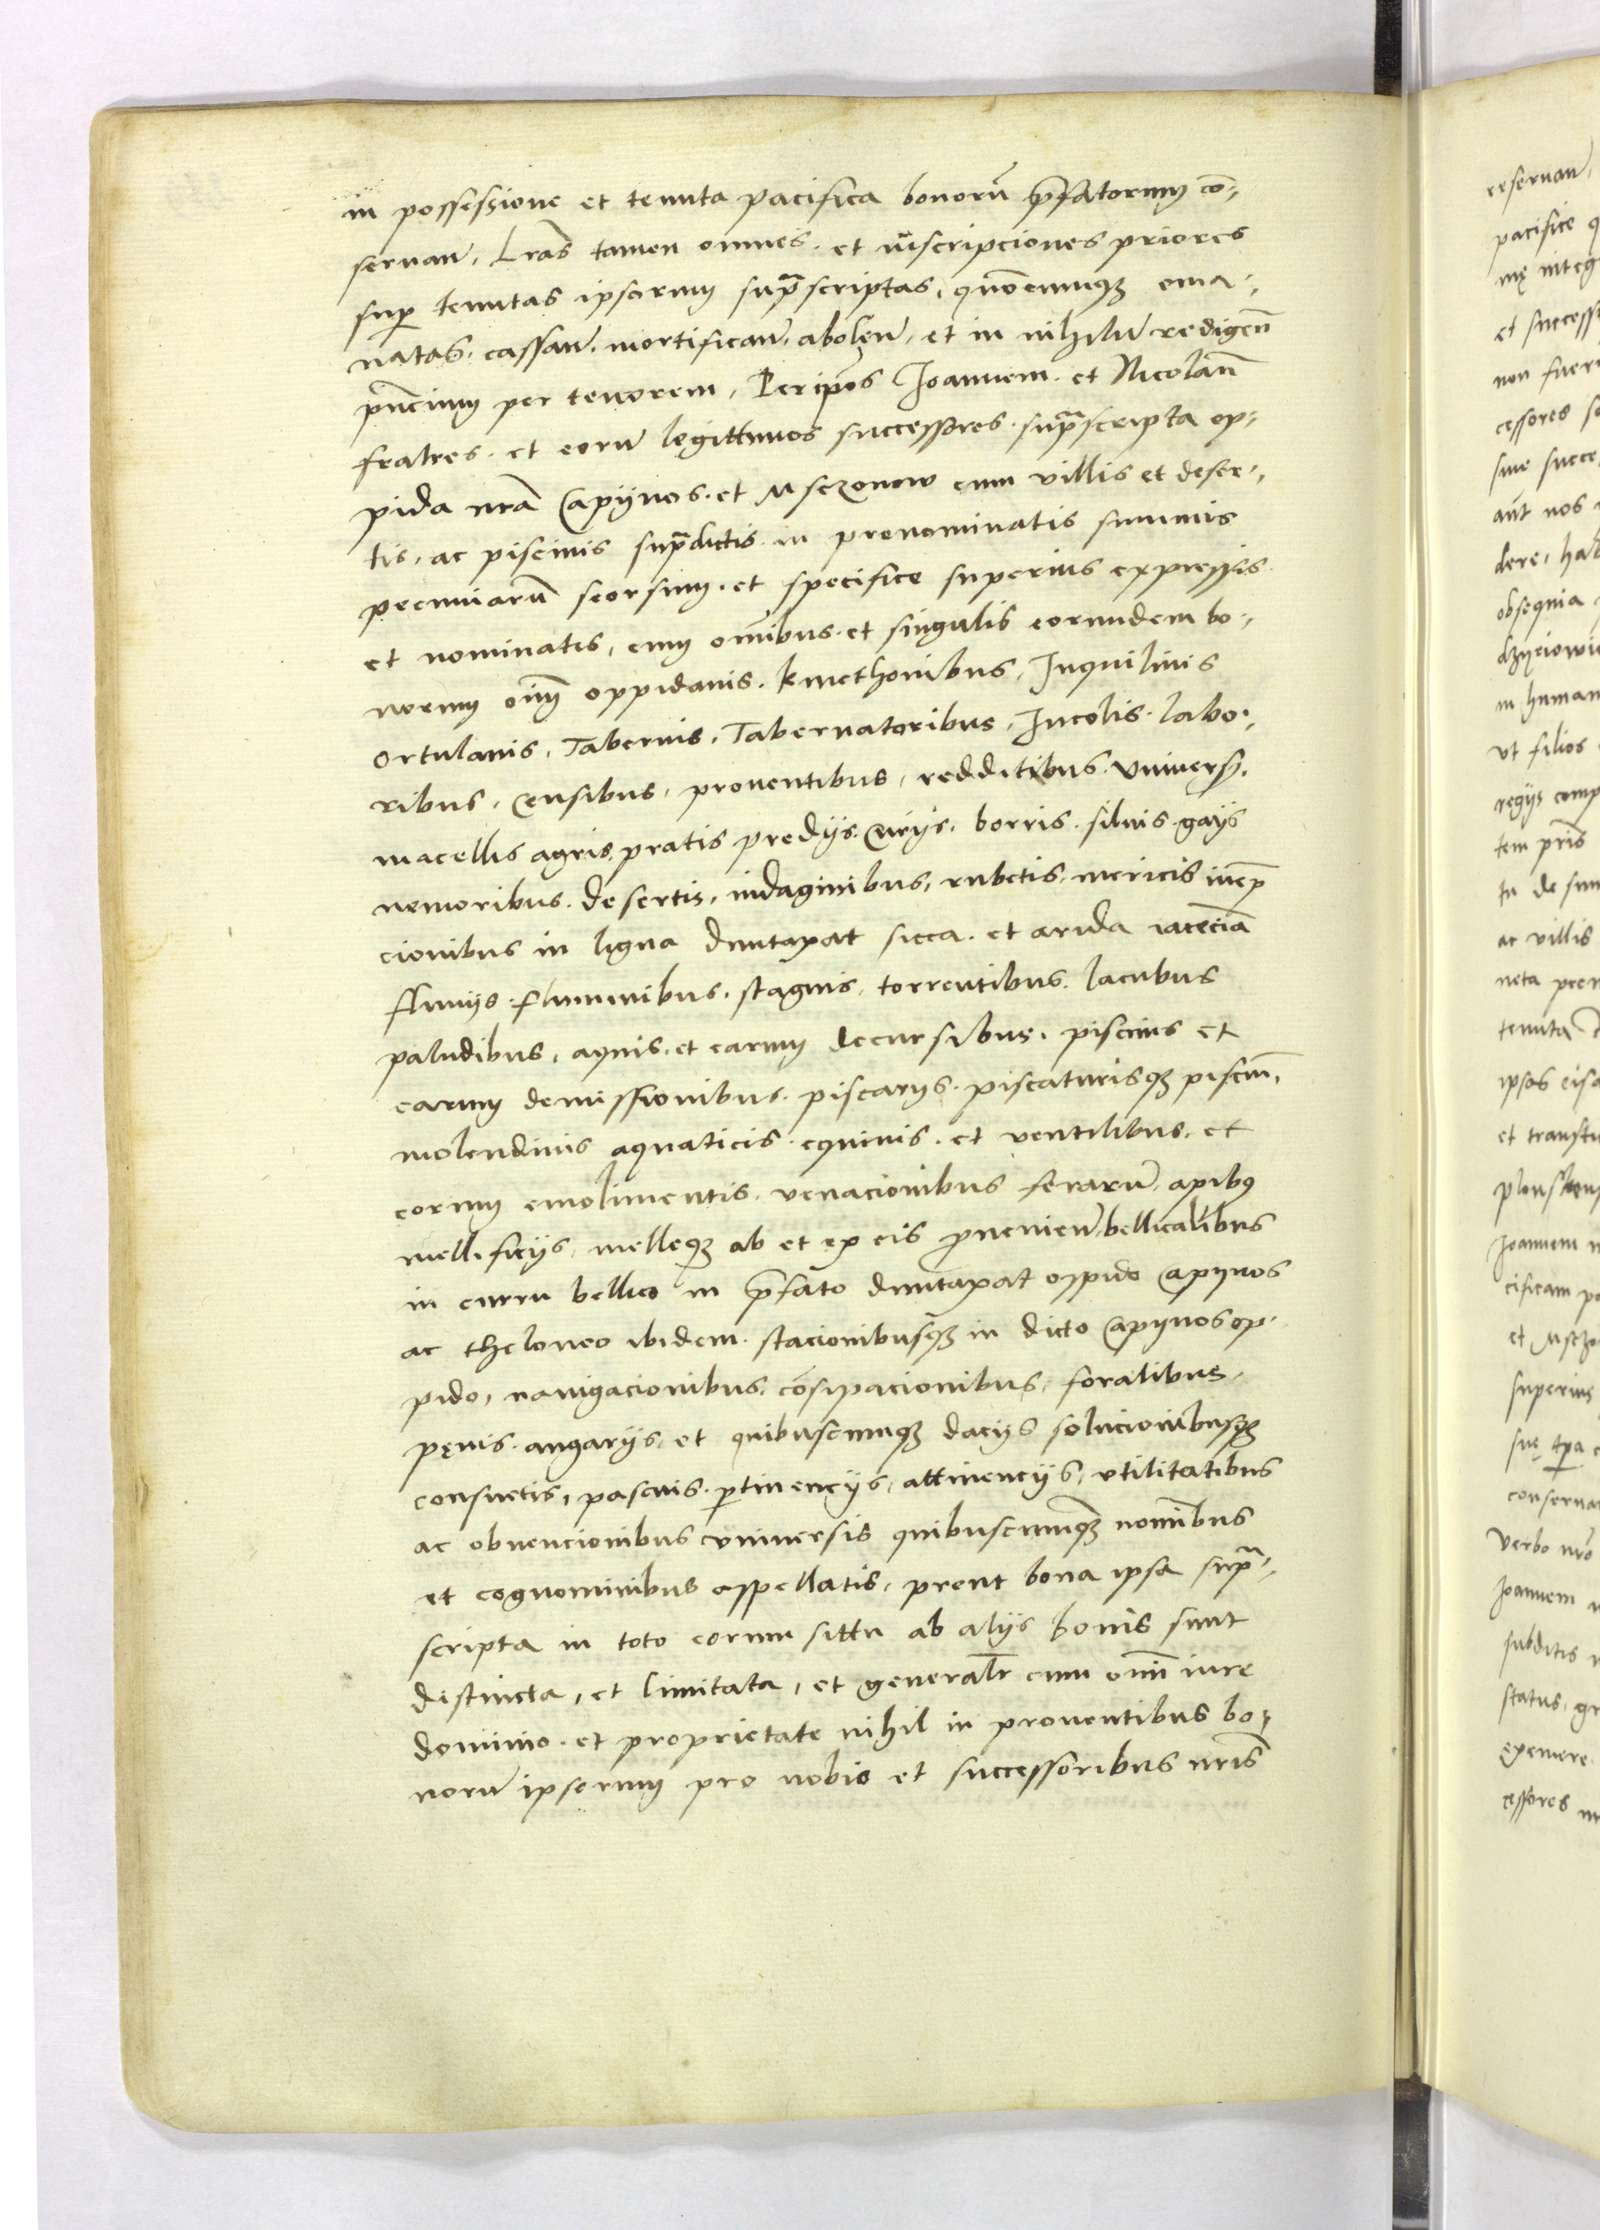 in possessione et tenuta pacifica bonorū p̄fatorum cō-
seruan̄. Lr̄as tamen omnes. et inscripciones priores
sup̱ tenutas ipsorum sup̄scriptas, quōcunqȝ ema-
natas. cassan̄. mortifican̄. abolen̄. et in nihilū redigen̄
pn̄cium per tenorem. Ioannem. et Nicolaū
fratres. et eorū legittimos successores. sup̄scripta op-
pida nr̄a Capijnos. et Msczonow cum villis et deser-
tis, ac piscinis sup̄dictis in prenominatis summis
pecuniarū seorsim. et specifice superius expressis
et nominatis, cum om̄ibus et singulis eorundem bo-
norum oīm oppidanis. kmethonibus, Inquilinis
Ortulanis, Tabernis, Tabernatoribus, Incolis. labo-
ribus, censibus, prouentibus, redditibus. vniuers̄.
macellis agris, pratis predijs curijs. borris. siluis. gaijs
nemoribus. desertis, indaginibus, rubetis, mericis
cionibus in ligna duntaxat sicca. et arida iacēcia
fluuijs. fluminibus. stagnis, torrentibus. lacubus
paludibus, aquis. et earum decursibus. piscinis et
earum demissionibus. piscarijs. piscaturisqȝ pisciū,
molendinis aquaticis. equinis. et ventilibus. et
eorum emolimentis. venacionibus ferarū, apibȝ
mellificijs, melleqȝ ab et ex eis p̱uenien̄. bellicalibus
in curru bellico in p̄fato duntaxat oppido Capijnos
ac theloneo ibidem. stacionibusqȝ in dicto Capijnos op-
pido, nauigacionibus. foralibus.
pęnis. angarijs, et quibuscunqȝ dacijs solucionibusqȝ
consuetis, pascuis. p̱tinencijs, attinencijs, vtilitatibus
ac obuencionibus vniuersis quibuscunqȝ nom̄ibus
et cognominibus appellatis, prout bona ipsa sup̄-
scripta in toto eorum sittu ab alijs bonis sunt
distincta, et limitata, et generalr̄ cum om̄i iure
dominio. et proprietate nihil in prouentibus bo-
norū ipsorum pro nobis et successoribus nr̄is
reseruan̄,
pacifice
nię integ
et success
non fuer
cessores
siue succe
aūt nos
dere, hab
obsequia
dzyciowi
in human
vt filios
regijs comp
tem pn̄s
tu de sum
ac villis
neta pren
tenuta
ipsos eisd
et transfu
Ioannem
cificam po
et Msczo
superius
suę
conserua
verbo nr̄o
Ioannem
subditis
status, gr
eximere
cessores